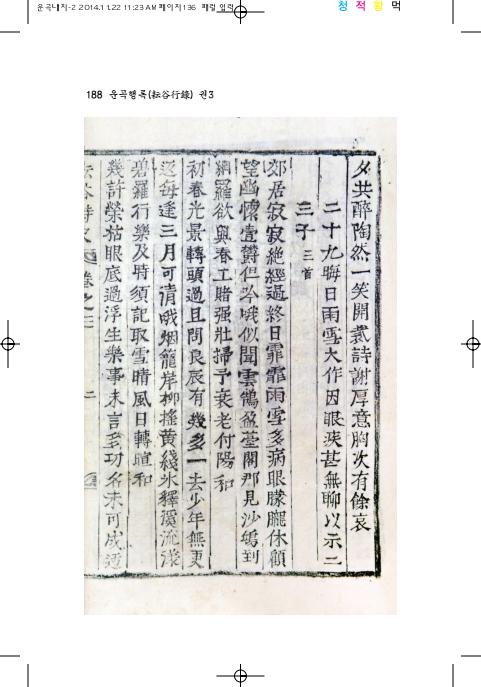 운곡내지-2 2014.11.22 11:23 AM 페이지136 패컬 일력
청 적 황 먹
188 운곡행록(耘谷行錄) 권3
夕共醉陶然一笑開裁詩謝厚意胸次有餘哀
二十九晦日雨雪大作因眼疾甚無聊以示二
三子 三首
郊居寂寂絶經過終日霏霏雨雪多病眼朦朧休顧
望幽懷壹鬱但吟哦似聞雲鶴盈臺閣那見沙鷗到
網羅欲與春工賭强壯掃予衰老付陽和
初春光景轉頭過且問良辰有幾多一去少年無更
返每逢三月可清哦烟籠岸柳搖黃綫氷釋溪流漾
碧羅行樂及時須記取雪晴風日轉暄和
幾許榮枯眼底過浮生樂事未言多功名未可成
卷之三
二